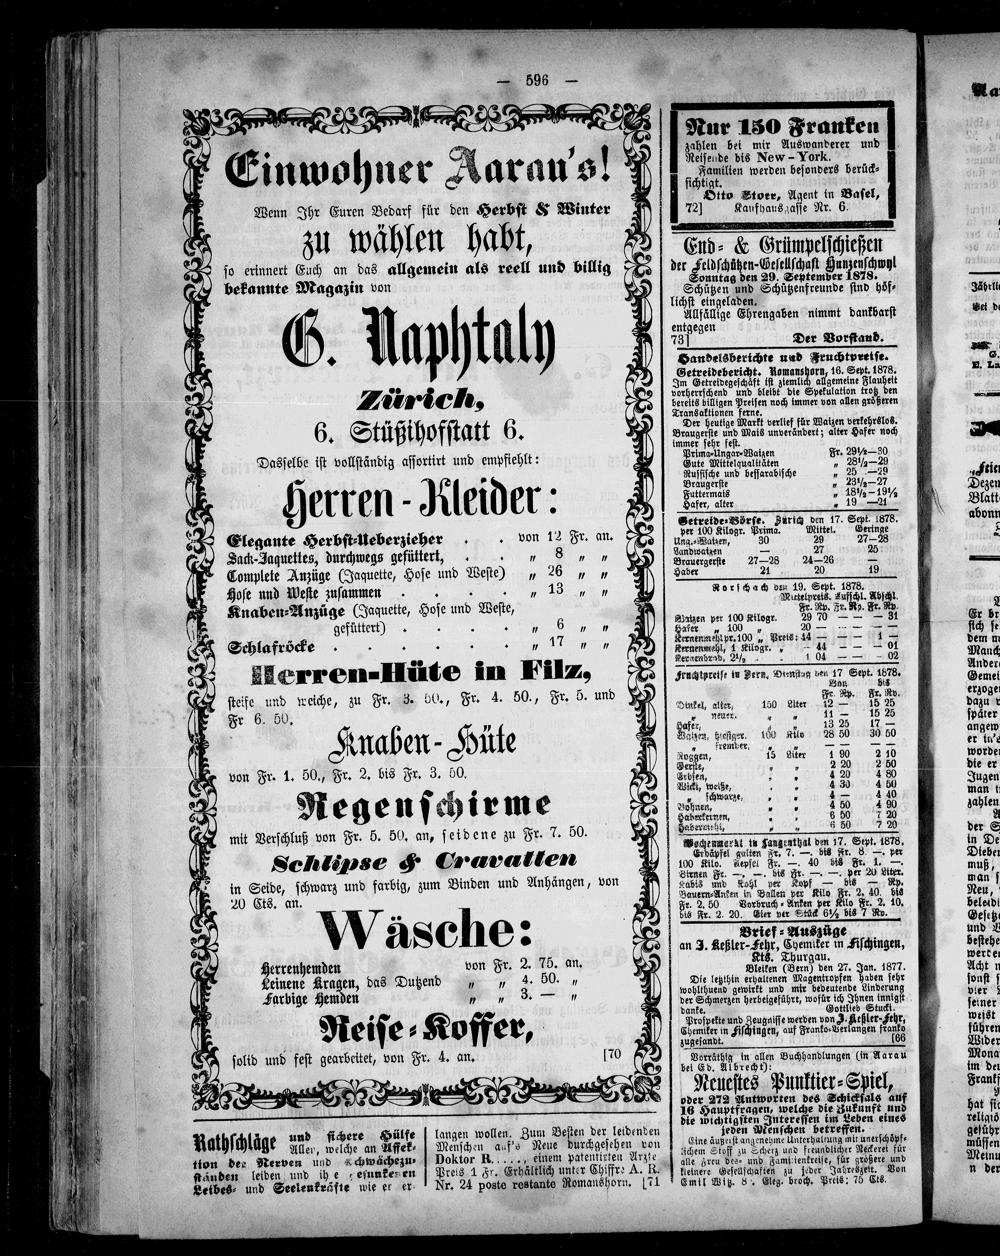 — 596 —
Einwohner Aarau's!
Wenn Ihr Euren Bedarf für den Herbst & Winter
zu wählen habt,
so erinnert Euch an das allgemein als reell und billig
bekannte Magazin von
G. Naphtaly
Zürich,
6. Stüßihofstatt 6.
Dasselbe ist vollständig assortirt und empfiehlt:
Herren-Kleider:
Elegante Herbst-Ueberzieher . . von 12 Fr. an.
Sack-Jaquettes, durchwegs gefüttert, . . „ 8 „ „
Complete Anzüge (Jaquette, Hose und Weste) „ 26 „ „
Hose und Weste zusammen . . . . „ 13 „ „
Knaben-Anzüge (Jaquette, Hose und Weste,
gefüttert) . . . . „ 6 „ „
Schlafröcke . . . . . . „ 17 „ „
Herren-Hüte in Filz,
steife und weiche, zu Fr. 3. 50., Fr. 4. 50., Fr. 5. und
Fr 6. 50.
Knaben-Hüte
von Fr. 1. 50., Fr. 2. bis Fr. 3. 50.
Regenschirme
mit Verschluß von Fr. 5. 50. an, seidene zu Fr. 7. 50.
Schlipse & Cravatten
in Seide, schwarz und farbig, zum Binden und Anhängen, von
20 Cts. an.
Wäsche:
Herrenhemden von Fr. 2. 75. an.
Leinene Kragen, das Dutzend „ „ 4. 50. „
Farbige Hemden „ „ 3. — „
Reise-Koffer,
solid und fest gearbeitet, von Fr. 4. an. [70
Rathschläge und sichere Hülfe
Allen, welche an Affek-
tion der Nerven und Schwächezu-
ständen leiden und ihre gesunkenen
Leibes- und Seelenkräfte wie er er-
langen wollen. Zum Besten der leidenden
Menschen auf's Neue durchgesehen von
Doktor R....., einem patentirten Arzte
Preis 1 Fr. Erhältlich unter Chiffre A. R.
Nr. 24 poste restante Romanshorn. [71
Nur 150 Franken
zahlen bei mir Auswanderer und
Reisende bis New-York.
Familien werden besonders berück-
sichtigt.
Otto Stoer, Agent in Basel,
72] Kaufhausgasse Nr. 6.
End- & Grümpelschießen
der Feldschützen-Gesellschaft Hunzenschwyl
Sonntag den 29. September 1878.
Schützen und Schützenfreunde sind höf-
lichst eingeladen.
Allfällige Ehrengaben nimmt dankbarst
entgegen
73] Der Vorstand.
Handelsberichte und Fruchtpreise.
Getreidebericht. Romanshorn, 16. Sept. 1878.
Im Getreidegeschäft ist ziemlich allgemeine Flauheit
vorherrschend und bleibt die Spekulation trotz den
bereits billigen Preisen noch immer von allen größeren
Transaktionen ferne.
Der heutige Markt verlief für Waizen verkehrslos.
Braugerste und Mais unverändert; alter Hafer noch
immer sehr fest.
Prima-Ungar-Waizen Fr. 29½—30
Gute Mittelqualitäten „ 28½—29
Russische und bessarabische „ 25 —29
Braugerste „ 23½—27
Futtermais „ 18½—19½
Hafer, alter „ 19 —21
Getreide-Börse. Zürich den 17. Sept. 1878.
per 100 Kilogr. Prima. Mittel. Geringe
Ung.-Waizen, 30 29 27—28
Landwaizen — 27 25
Brauergerste 27—28 24—26 —
Haber 21 20 19
Rorschach den 19. Sept. 1878.
Mittelpreis. Aufschl. Abschl.
Fr. Rp. Fr. Rp. Fr. Rp.
Waizen per 100 Kilogr. 29 70 — — — 31
Hafer „ 100 „ 20 — — — — —
Kernenmehl pr. 100 „ Preis: 44 — — — 1 —
Kernenmehl, 1 Kilogr. „ - 44 — — — 01
Kernenbrod, 2½ „ 1 04 — — — 02
Fruchtpreise in Bern, Dienstag den 17 Sept. 1878.
von bis
Fr. Rp. Fr. Rp.
Dinkel, alter, 150 Liter 12 — 15 25
„ neuer. „ „ 11 — 15 25
Hafer, „ „ 13 25 17 —
Waizen, hiesiger. 100 Kilo 28 50 30 50
„ fremder, „ „ — — — —
Roggen, 15 Liter 1 90 2 10
Gerste, „ „ 2 20 2 50
Erbsen, „ „ 4 20 4 80
Wicki, weiße, „ „ 4 30 4 50
„ schwarze, „ „ 4 — 4 40
Bohnen, „ „ 4 50 4 90
Haberkernen, „ „ 6 50 7 20
Habermehl, „ „ 6 50 7 20
Wochenmarkt in Langenthal den 17. Sept. 1878.
Erdäpfel galten Fr. 7. —. bis Fr. 8. —. per
100 Kilo. Aepfel Fr. —. 40 bis Fr. 1. —.
Birnen Fr. —. —. bis Fr. —. —. per 20 Liter.
Kabis und Kohl per Kopf — bis — Rp.
Bauern-Anken in Ballen per Kilo Fr. 2. 40. bis
Fr. 2. 50 Vorbruch-Anken per Kilo Fr. 2. 10.
bis Fr. 2. 20. Eier per Stück 6½ bis 7 Rp.
Brief-Auszüge
an J. Keßler-Fehr, Chemiker in Fischingen,
Kts. Thurgau.
Bleiken (Bern) den 27. Jan. 1877.
Die letzthin erhaltenen Magentropfen haben sehr
wohlthuend gewirkt und mir bedeutende Linderung
der Schmerzen herbeigeführt, wofür ich Ihnen innigst
danke. Gottlieb Stucki.
Prospekte und Zeugnisse werden von J. Keßler-Fehr,
Chemiker in Fischingen, auf Franko-Verlangen franko
zugesandt. [66
Vorräthig in allen Buchhandlungen (in Aarau
bei Ed. Albrecht):
Neuestes Punktier-Spiel,
oder 272 Antworten des Schicksals auf
16 Hauptfragen, welche die Zukunft und
die wichtigsten Interessen im Leben eines
jeden Menschen betreffen.
Eine äußerst angenehme Unterhaltung mit unerschöpf-
lichem Stoff zu Scherz und freundlicher Neckerei für
alle Freundes- und Familienkreise, für größere und
kleinere Gesellschaften zu jeder Jahreszeit. Von
Emil Witz. 8°. Eleg. broch. Preis: 75 Cts.